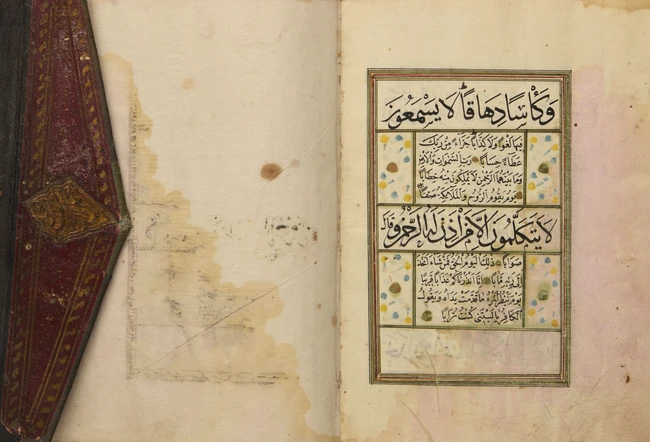 وَكَأْسًا دِهَاقًا لَا يَسْمَعُونَ
فِيهَا لَغْوًا وَلَا كِذَّابًا جَزَاءً مِنْ رَبِّكَ
عَطَاءً حِسَابًا رَبِّ السَّمٰوَاتِ وَالْاَرْضِ
وَمَا بَيْنَهُمَا الرَّحْمٰنِ لَا يَمْلِكُونَ مِنْهُ خِطَابًا
يَوْمَ يَقُومُ الرُّوحُ وَالْمَلٰئِكَةُ صَفًّا
لَا يَتَكَلَّمُونَ اِلَّا مَنْ اَذِنَ لَهُ الرَّحْمٰنُ وَقَالَ
صَوَابًا ذٰلِكَ الْيَوْمُ الْحَقُّ فَمَنْ شَاءَ اتَّخَذَ
اِلٰى رَبِّهِ مَاٰبًا اِنَّا اَنْذَرْنَاكُمْ عَذَابًا قَرِيبًا
يَوْمَ يَنْظُرُ الْمَرْءُ مَا قَدَّمَتْ يَدَاهُ وَيَقُولُ
الْكَافِرُ يَا لَيْتَنِي كُنْتُ تُرَابًا